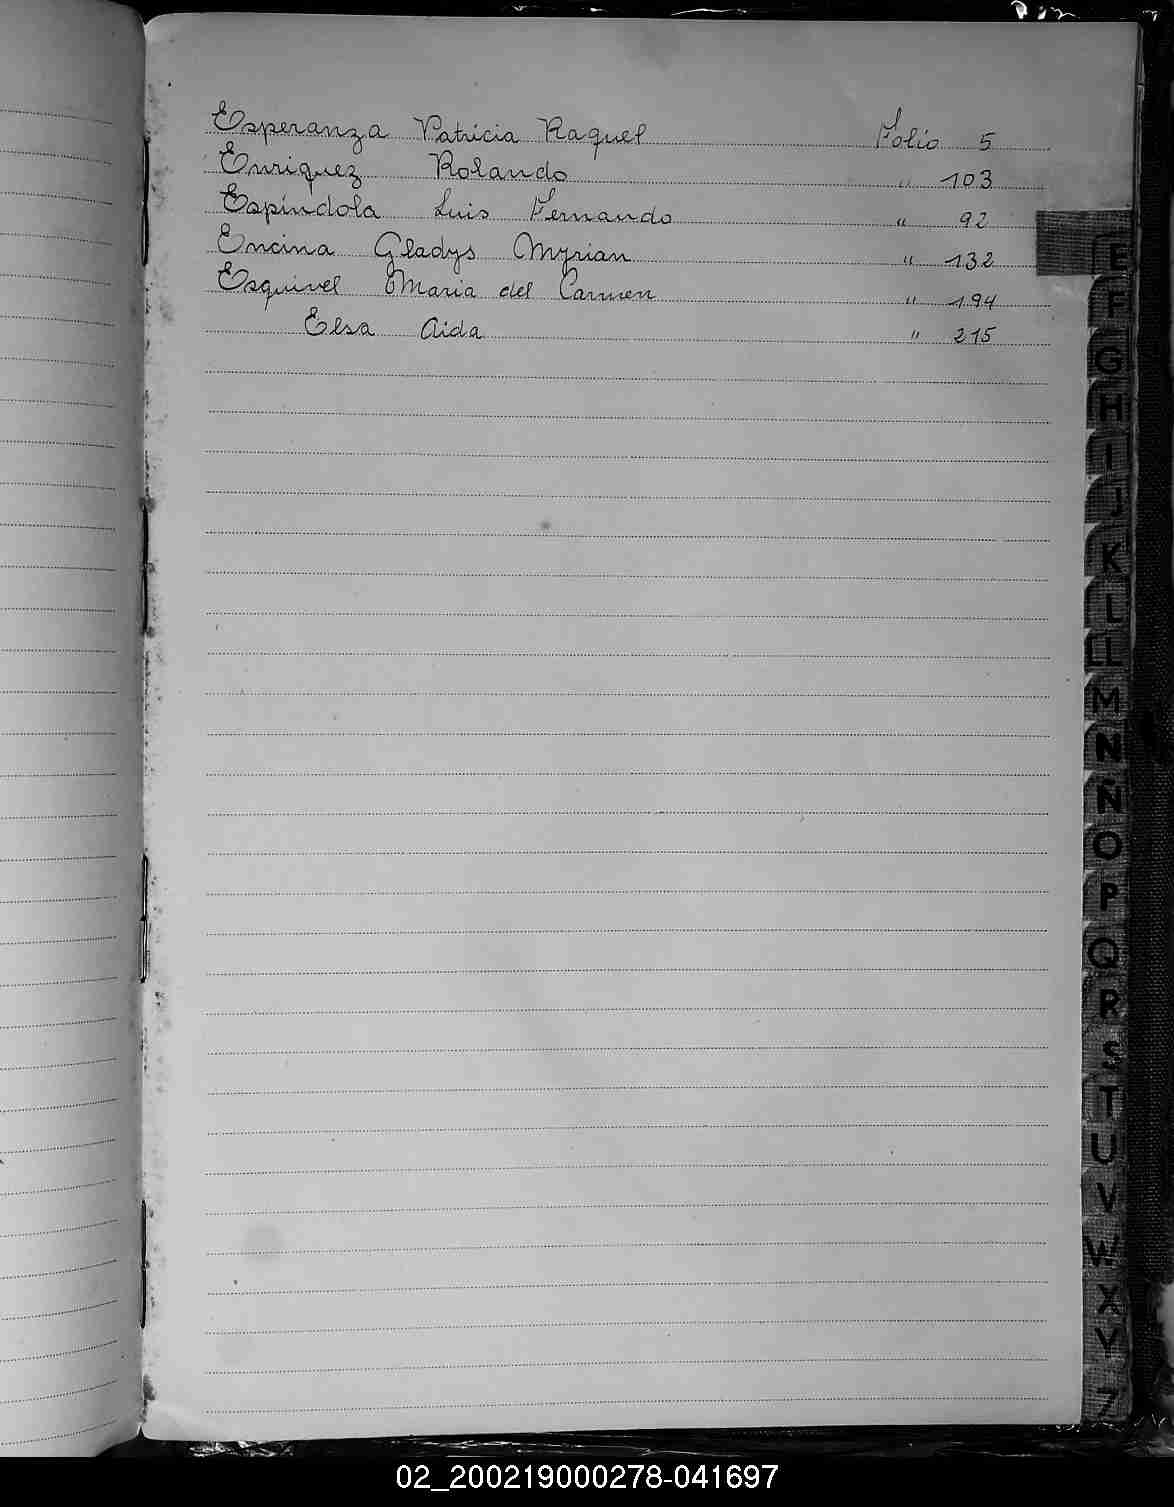 Esperanza Patricia Raquel Folio 5
Enriquez Rolando " 103
Espíndola Luis Fernando " 92
Encina Gladys Myrian " 132
Esquivel Maria del Carmen " 194
Elsa Aida " 215
E
F
G
H
I
J
K
L
LL
M
N
Ñ
O
P
Q
R
S
T
U
V
W
X
Y
Z
02_200219000278-041697